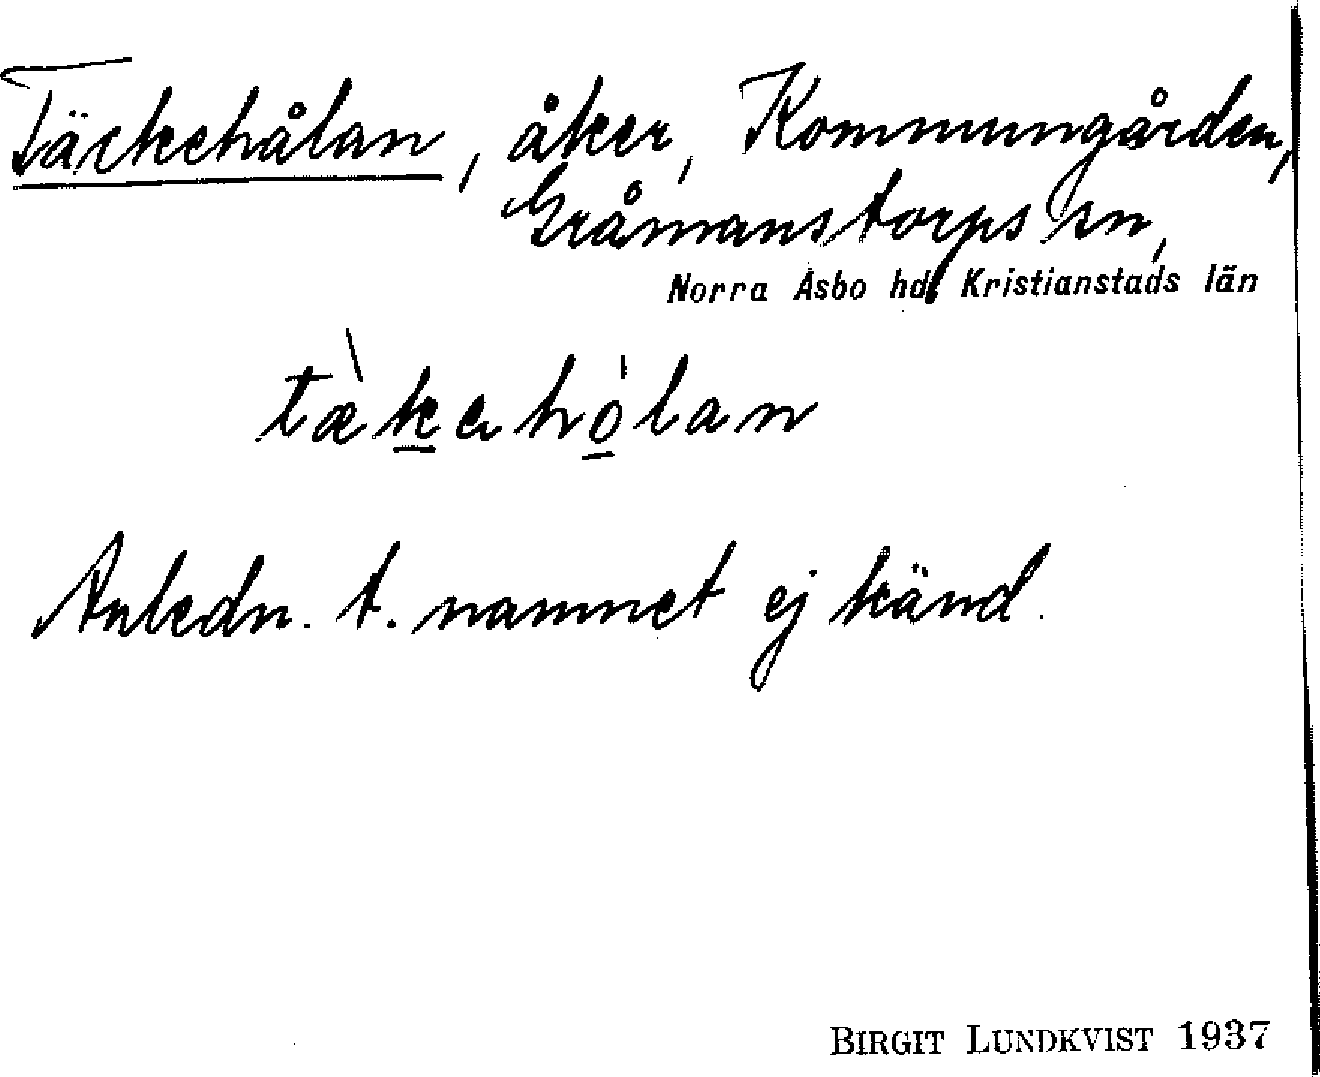 Täckehålan, åker, Kommungården,
Gråmanstorps sn,
Norra Åsbo hd, Kristianstads län
tæ̀kehólan
Anledn. t. namnet ej känd.
BIRGIT LUNDKVIST 1937